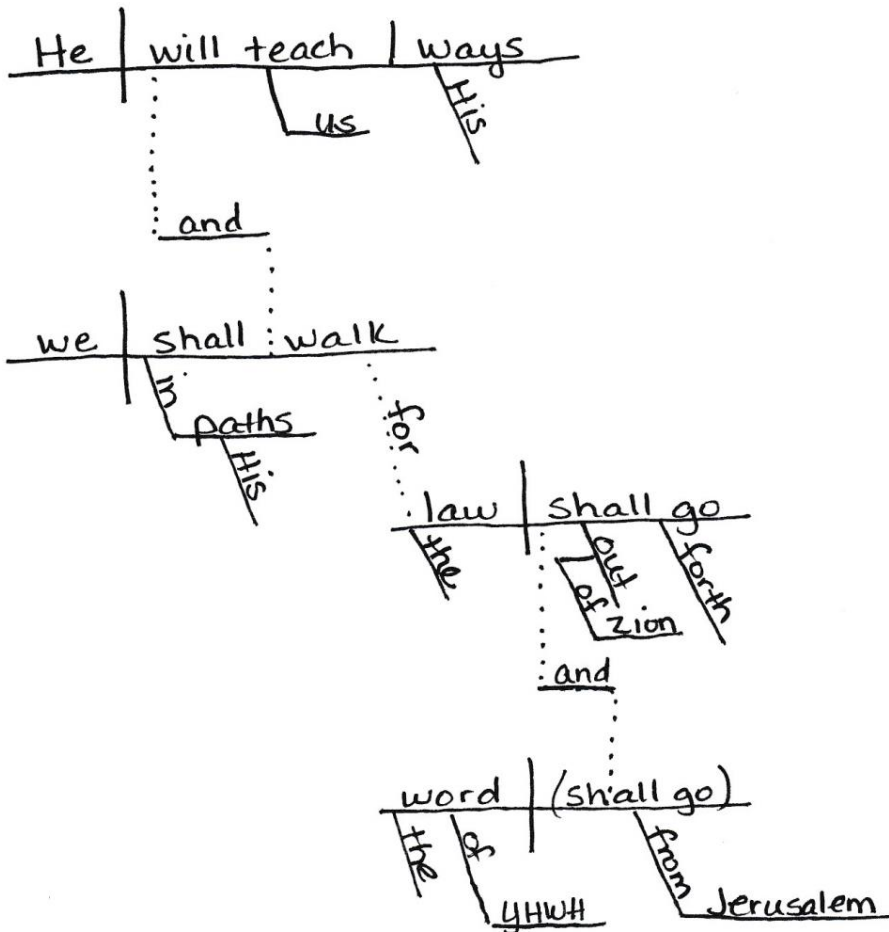 He will teach ways
us
His
and
we shall walk
in
paths
His
for
law shall go
the
out
of
Zion
forth
and
word (shall go)
the
of
YHWH
from
Jerusalem